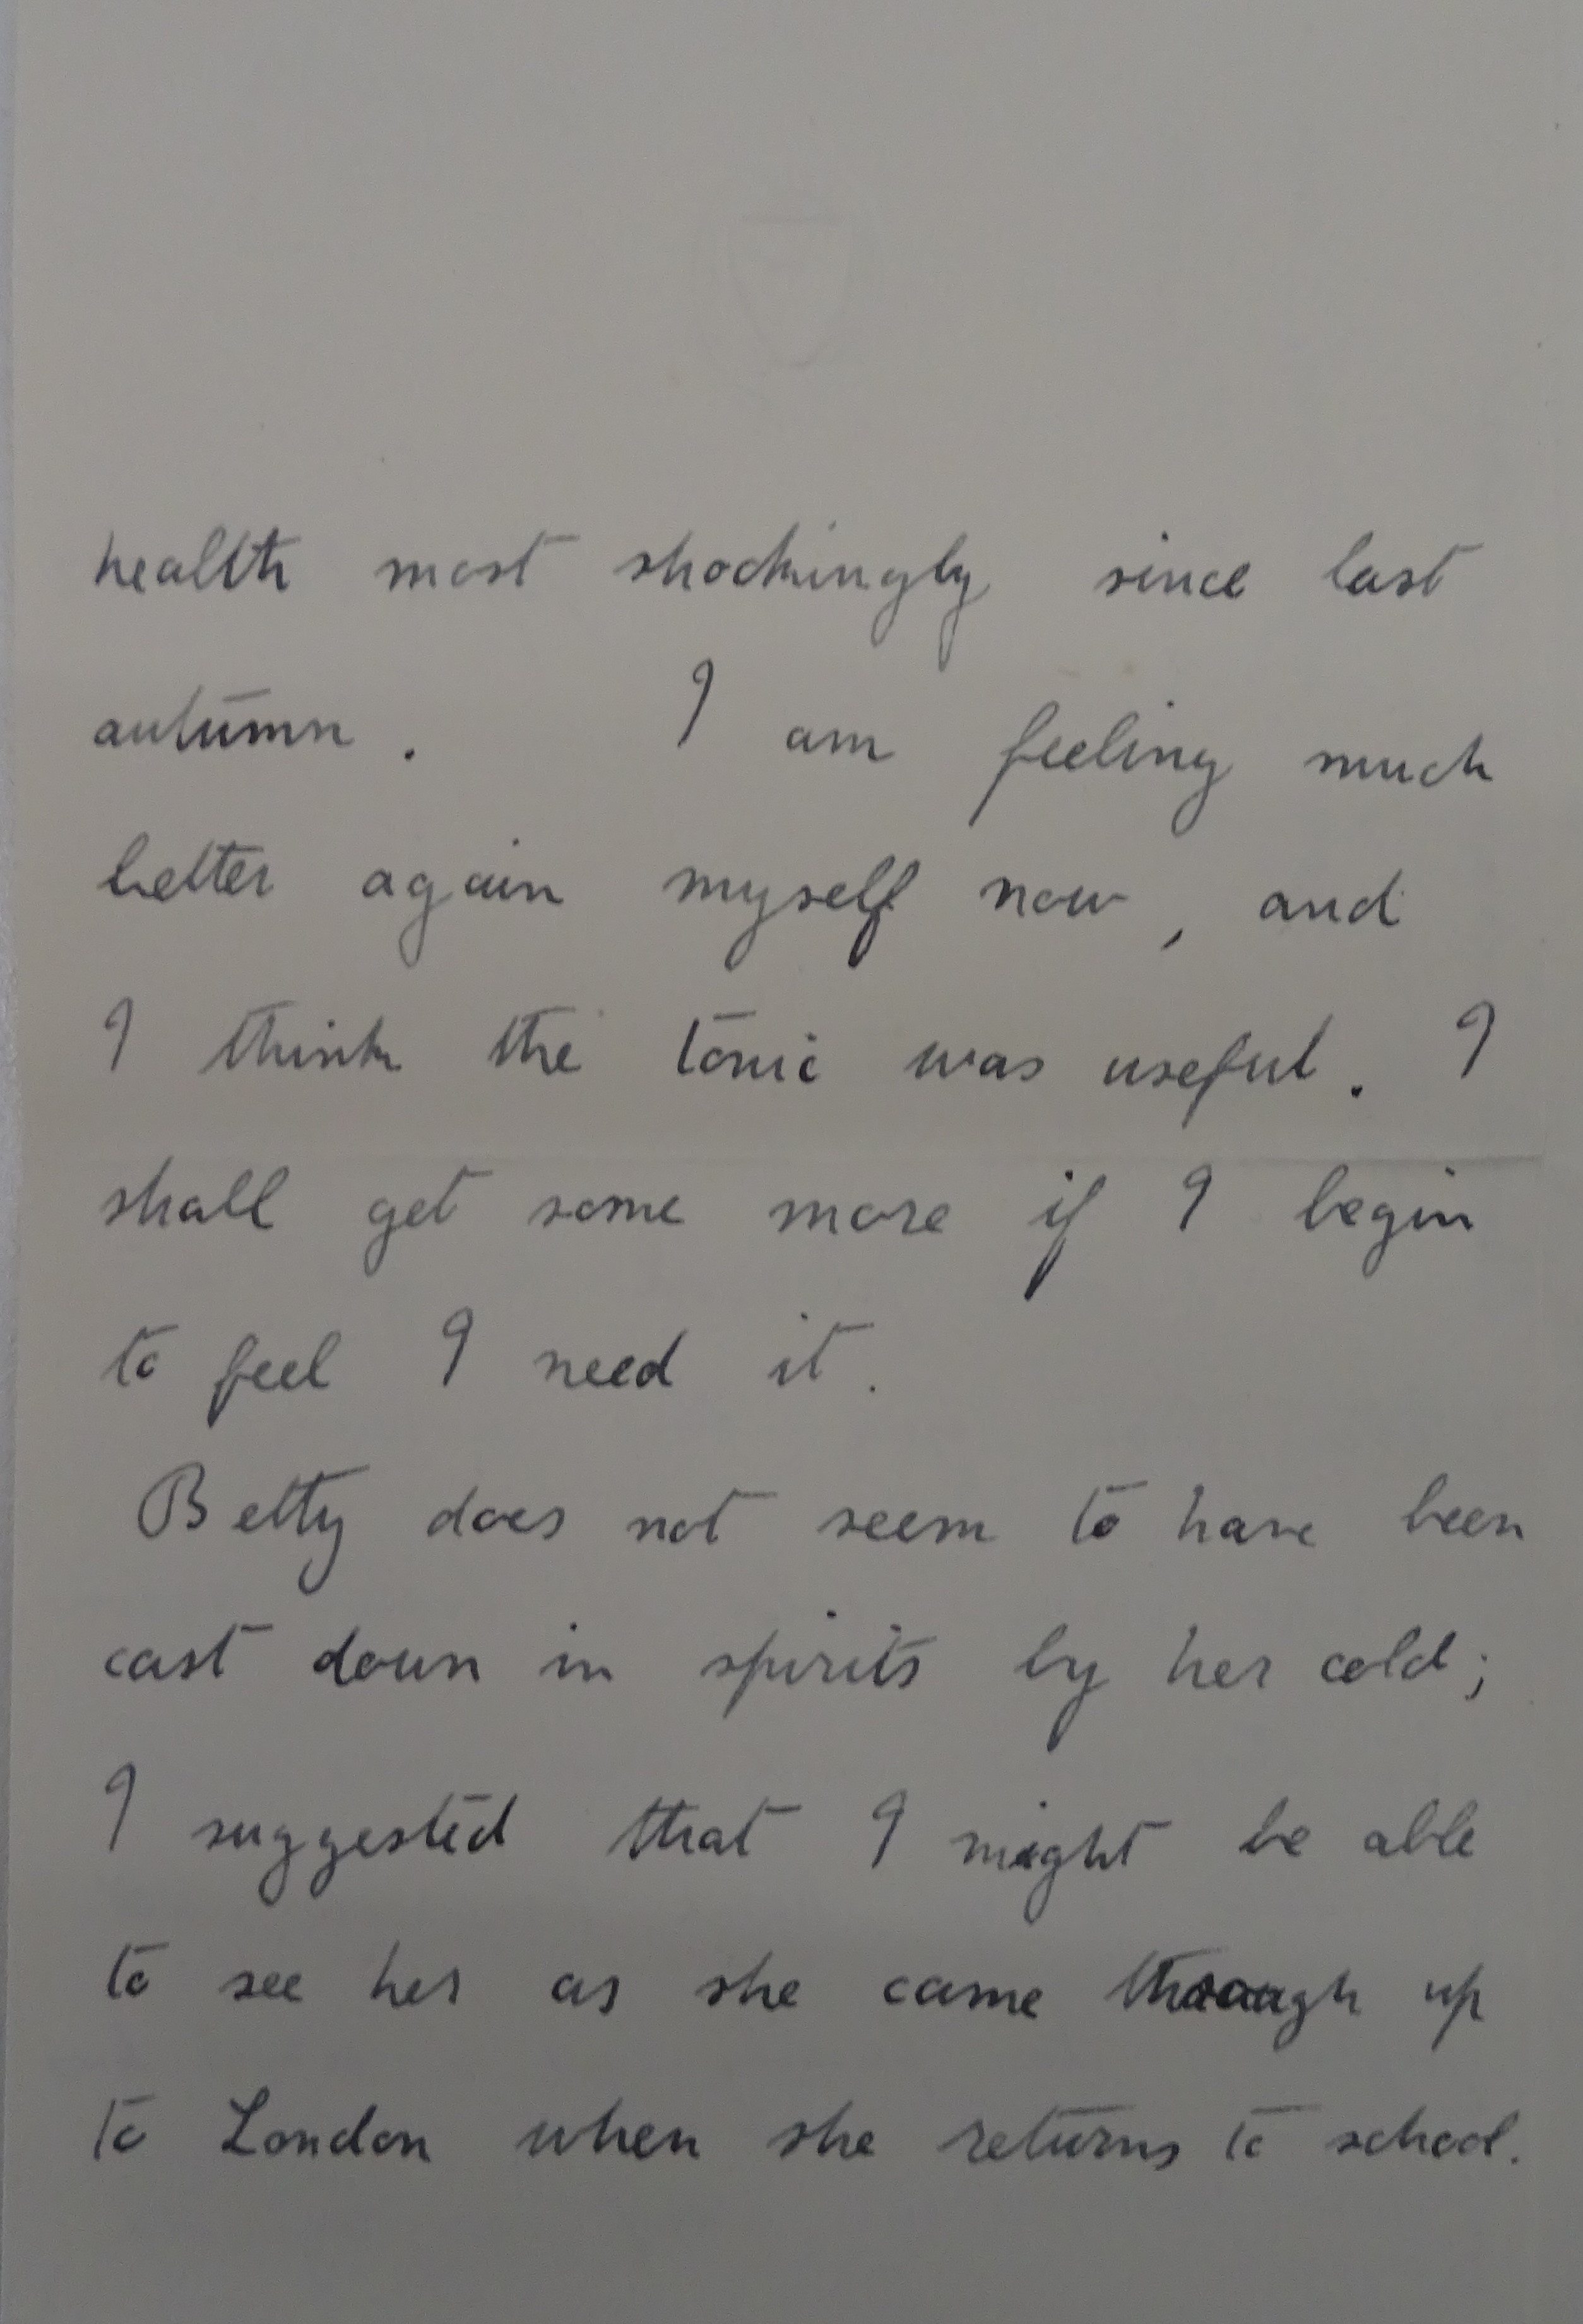 health most shockingly since last
autumn. I am feeling much
better again myself now, and
I think the tonic was useful. I
shall get some more if I begin
to feel I need it.
Betty does not seem to have been
cast down in spirits by her cold;
I suggested that I might be able
to see her as she came through up
to London when she returns to school.